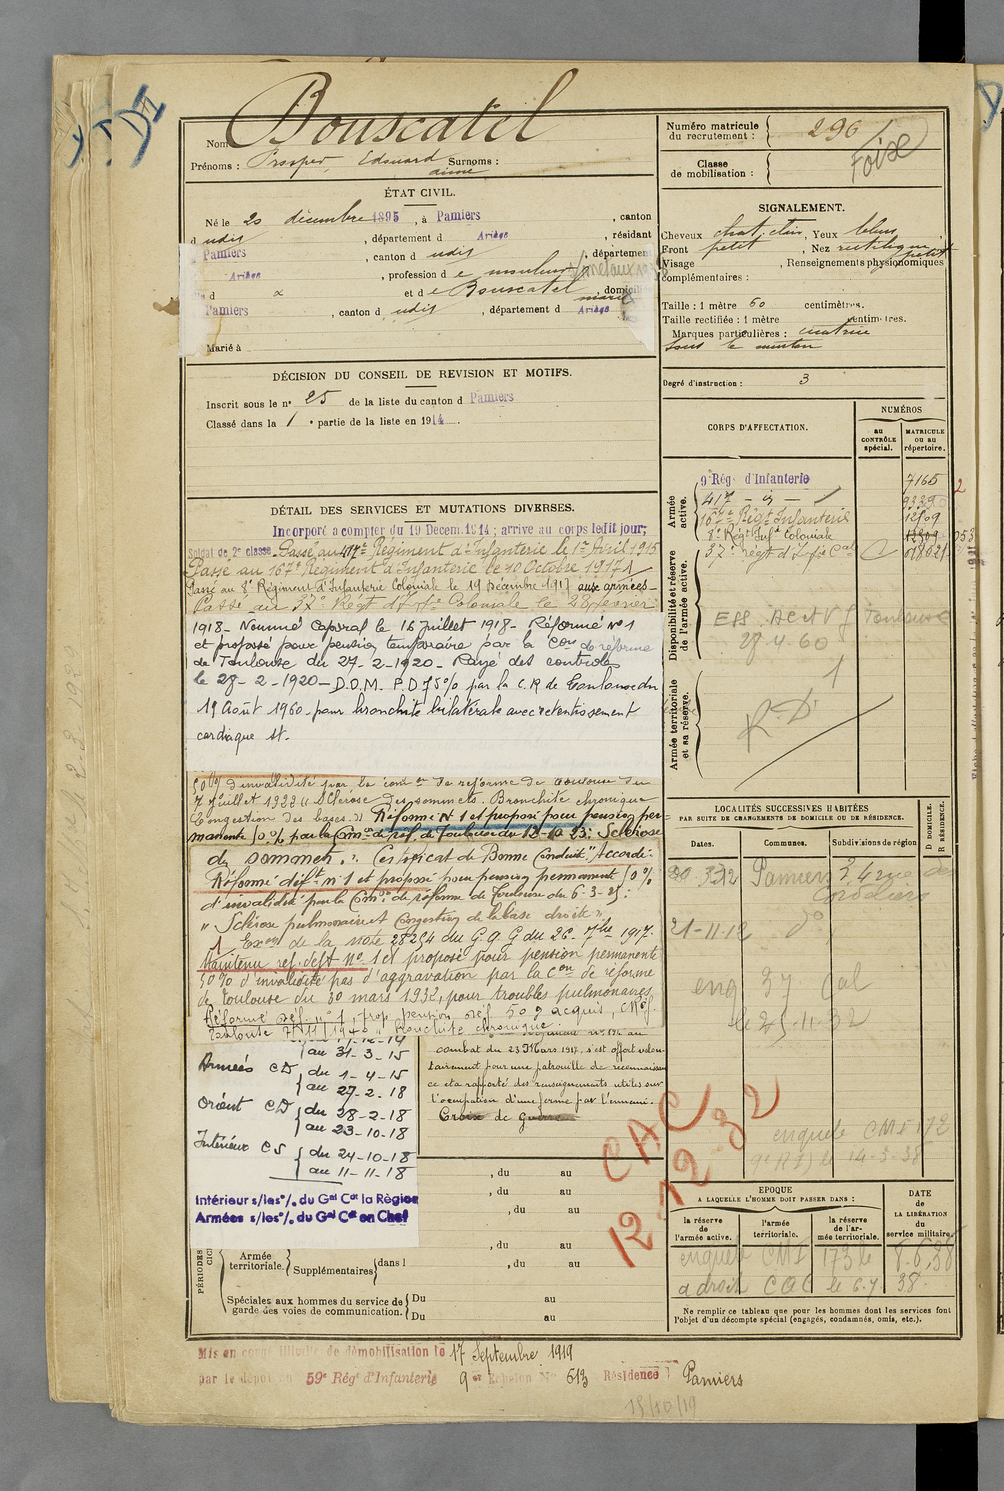 Nom Bouscatel
Prénoms : Prosper Edouard Surnoms :
aimé
ÉTAT CIVIL.
Né le 20 décembre 1895, à Pamiers, canton
d udit, département d Ariège, résidant
Pamiers, canton d udit, département
Ariège, profession d e mouleur
et d e Bouscatel, domiciliés
Pamiers, canton d udit, département d Ariège
Marié à
DÉCISION DU CONSEIL DE REVISION ET MOTIFS.
Inscrit sous le n° 25 de la liste du canton d Pamiers
Classé dans la 1e partie de la liste en 1914
DÉTAIL DES SERVICES ET MUTATIONS DIVERSES.
Incorporé a compter du 19 Decem. 1914; arrive au corps ledit jour;
Soldat de 2e classe. Passé au 417e Régiment d'Infanterie le 1er Avril 1915
Passé au 167e Régiment d'Infanterie le 10 Octobre 1917
Passé au 8e Régiment d'Infanterie Coloniale le 19 Décembre 1917 aux armées
Passé au 37e Régt d'Inf.ie Coloniale le 28 février
1918 - Nommé Caporal le 16 juillet 1918 - Réformé N°1
et proposé pour pension temporaire par la Con de réforme
de Toulouse du 27-2-1920 - Rayé des controles
le 28-2-1920 - D.O.M. P.D 75% par la C.R de Toulouse du
19 Août 1960 - pour bronchite bilatérale avec retentissement
cardiaque
50% d'invalidité par la Comon de réforme de Toulouse du
7 juillet 1922 "Sclérose des sommets. Bronchite chronique
Congestion des bases." Réformé N°1 et proposé pour pension per-
manente 50% par la Comon de réf. de Toulouse du 12-10-23: Sclérose
des sommets. Certificat de Bonne Conduite "Accordé"
Réformé déft n°1 et proposé pour pension permanente 50%
d'invalidité par la Comon de réforme de Toulouse du 6-3-25:
"Sclérose pulmonaire et Congestion de la base droite".
Exon de la note 28254 du G.Q.G du 26 7bre 1917.
Maintenu réf. déft N°1 et proposé pour pension permanente
50% d'invalidité pas d'aggravation par la Con de réforme
de Toulouse du 30 mars 1932, pour troubles pulmonaires
Réformé déf. n°1, prop pension déf 50% acquis, C. Réf.
Toulouse 7/11/1940 "Bronchite chronique"
au 31-3-15
Armées CD du 1-4-15
au 27-2-18
Orient CD du 28-2-18
au 23-10-18
Intérieur CS du 24-10-18
au 11-11-18
Intérieur s/les°/. du Gal Cdt la Région
Armées s/les°/. du Gal Cdt en Chef
combat du 23 Mars 1917, s'est offert volon-
tairement pour une patrouille de reconnaissan
ce et a rapporté des renseignements utiles sur
l'occupation d'une ferme par l'ennemi.
Croix de Guerre
, du au
, du au
, du au
, du au
PÉRIODES
Armée territoriale. Supplémentaires dans l , du au
Spéciales aux hommes du service de Du au
garde des voies de communication. Du au
Mis en congé illimité de démobilisation le 17 Septembre 1919
par le dépôt du 59e Rég d'Infanterie 9e Echelon N° 613 Résidence Pamiers
15/10/19
Numéro matricule
du recrutement : 296
Foix
Classe
de mobilisation :
SIGNALEMENT.
Cheveux chat. clair, Yeux bleus
Front petit, Nez rectiligne
petit
Visage , Renseignements physionomiques
complémentaires :
Taille : 1 mètre 60 centimètres.
Taille rectifiée : 1 mètre centimètres.
Marques particulières : cicatrice
sous le menton
Degré d'instruction : 3
CORPS D'AFFECTATION.
NUMÉROS
au CONTRÔLE spécial.
MATRICULE ou au répertoire.
Armée active.
9e Rég d'Infanterie 7165
417 - d° - 9339
167e Régt Infanterie 12709
8e Régt Infie Coloniale
37e régt d'Infie Cale
Disponibilité et réserve de l'armée active.
Toulouse
27-4-60
Armée territoriale et sa réserve.
R.D
LOCALITÉS SUCCESSIVES HABITÉES
PAR SUITE DE CHANGEMENTS DE DOMICILE OU DE RÉSIDENCE.
Dates. Communes. Subdivisions de région D DOMICILE. R RÉSIDENCE.
Pamiers 34 rue des
Cordeliers
21-11-12 d°
eng 37 Cal
le 25-11-32
enquete CMI 172
14-3-38
CAC
12-12-32
EPOQUE
A LAQUELLE L'HOMME DOIT PASSER DANS :
la réserve de l'armée active.
l'armée territoriale.
la réserve de l'armée territoriale.
DATE de LA LIBÉRATION du service militaire.
enquete CMI 173 le 6.6.38
a droit CAC le 6.7.38.
Ne remplir ce tableau que pour les hommes dont les services font
l'objet d'un décompte spécial (engagés, condamnés, omis, etc.).